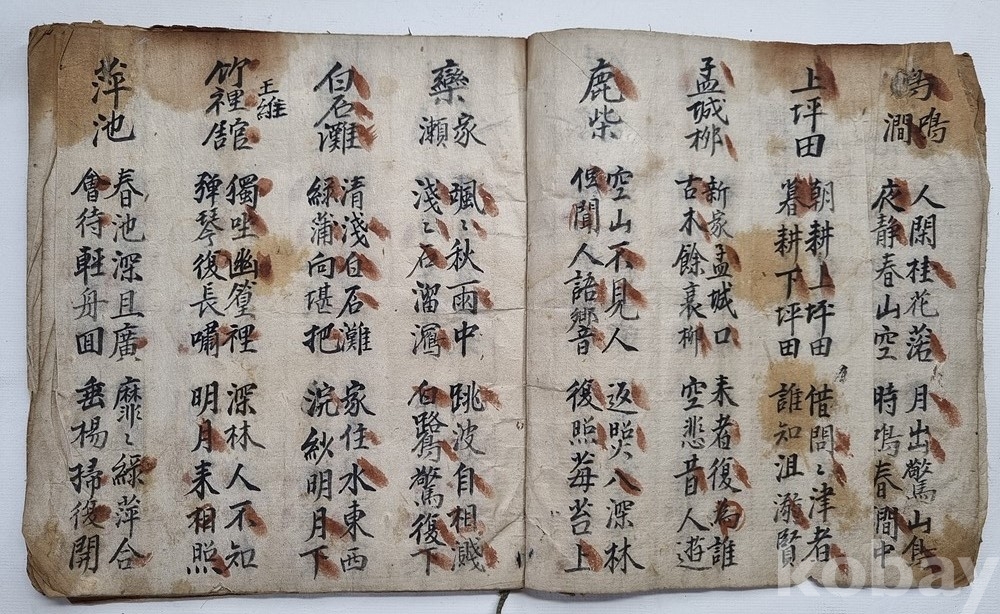 鳥鳴澗
人閑桂花落
夜靜春山空
月出驚山鳥
時鳴春間中
上坪田
朝耕上坪田
暮耕下坪田
借問〻津者
誰知沮溺賢
孟城柳
新家孟城口
古木餘衰柳
来者復為誰
空悲昔人遊
鹿柴
空山不見人
但聞人語響
返照入深林
復照莓苔上
欒家瀬
颯〻秋雨中
淺〻石溜瀉
跳波自相濺
白鷺驚復下
白石灘
清淺白石灘
綠蒲向堪把
家住水東西
浣紗明月下
竹裡舘
王維
獨坐幽篁裡
彈琴復長嘯
深林人不知
明月来相照
萍池
春池深且廣
會待輕舟回
靡〻綠萍合
垂楊掃復開
kobay